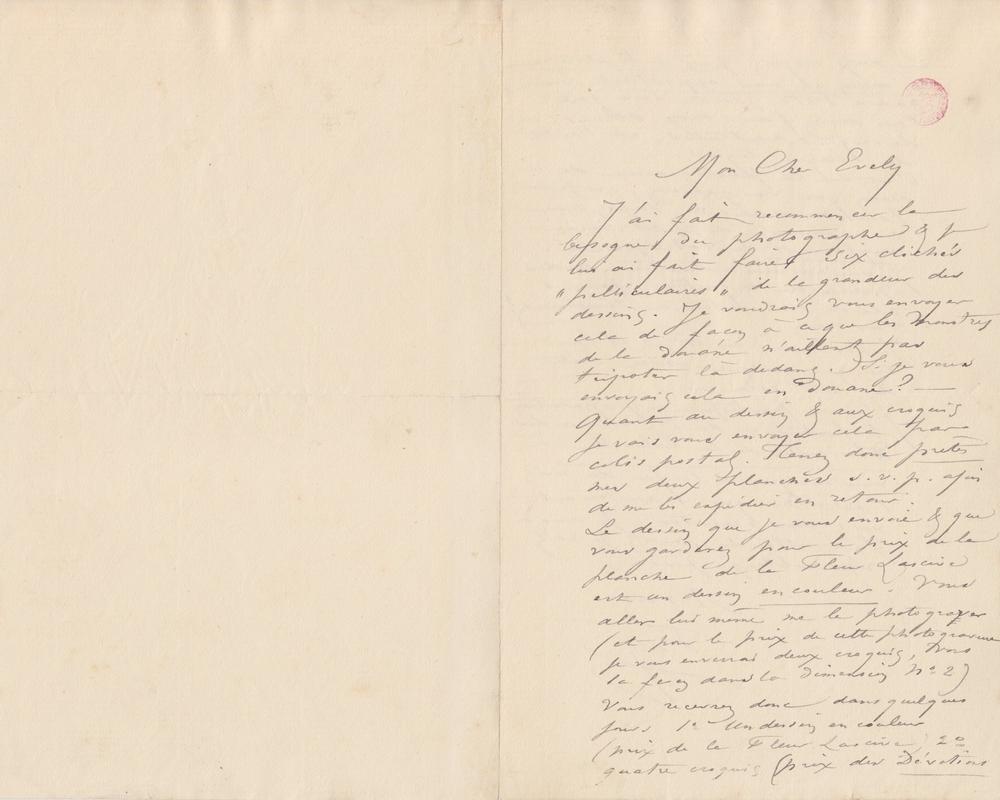 Mon Cher Evely
J'ai fait recommencer la
besogne du photographe & je
lui ai fait faire six clichés
"pelliculaires" de la grandeur des
dessins. Je voudrais vous envoyer
cela de façon à ce que les monstres
de la douane n'aillent pas
tripoter là dedans. Si je vous
envoyais cela en Douane?
Quant au dessin & aux croquis
je vais vous envoyer cela par
colis postal. Tenez donc prêtes
mes deux planches s.v.p. afin
de me les expédier en retour.
Le dessin que je vous envoie & que
vous garderez pour le prix de la
planche de la Fleur Lascive
est un dessin en couleur. Vous
allez lui même me le photograver
(et pour le prix de cette photogravure
je vous enverrai deux croquis, Vous
la ferez dans la dimension No 2)
Vous recevrez donc dans quelques
jours 1o Un dessin en couleur
(prix de la Fleur Lascive) 2o
quatre croquis (prix des Dévotions